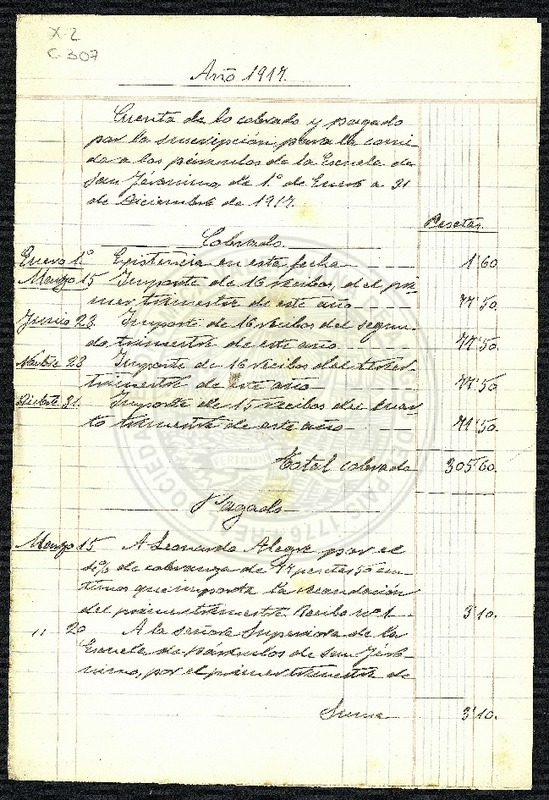 X-2
C-307
Año 1917.
Cuenta de lo cobrado y pagado
por la suscripción para la comi
da a los párvulos de la Escuela de
San Jerónimo, de 1º de Enero a 31
de Diciembre de 1917.
Pesetas
Cobrado
Enero 1º Existencia en esta fecha 1'60
Marzo 15 Importe de 16 recibos, del pri
mer trimestre de este año 77'50.
Junio 23 Importe de 16 recibos del segun
do trimestre de este año 77'50.
Novbre 23 Importe de 16 recibos del tercer
trimestre de este año 77'50.
Dicbre 31. Importe de 15 recibos del cuar
to trimestre de este año 71'50.
Total cobrado 305'60.
Pagado
Marzo 15 A Leonardo Alegre por el
4% de cobranza de 77 pesetas 50 cén
timos que importa la recaudación
del primer trimestre Recibo nº 1 3'10.
" 20 A la señora Superiora de la
Escuela de Párvulos de San Jeró-
nimo, por el primer trimestre de
Suma 3'10.
REAL SOCIEDAD
PAIS 1776